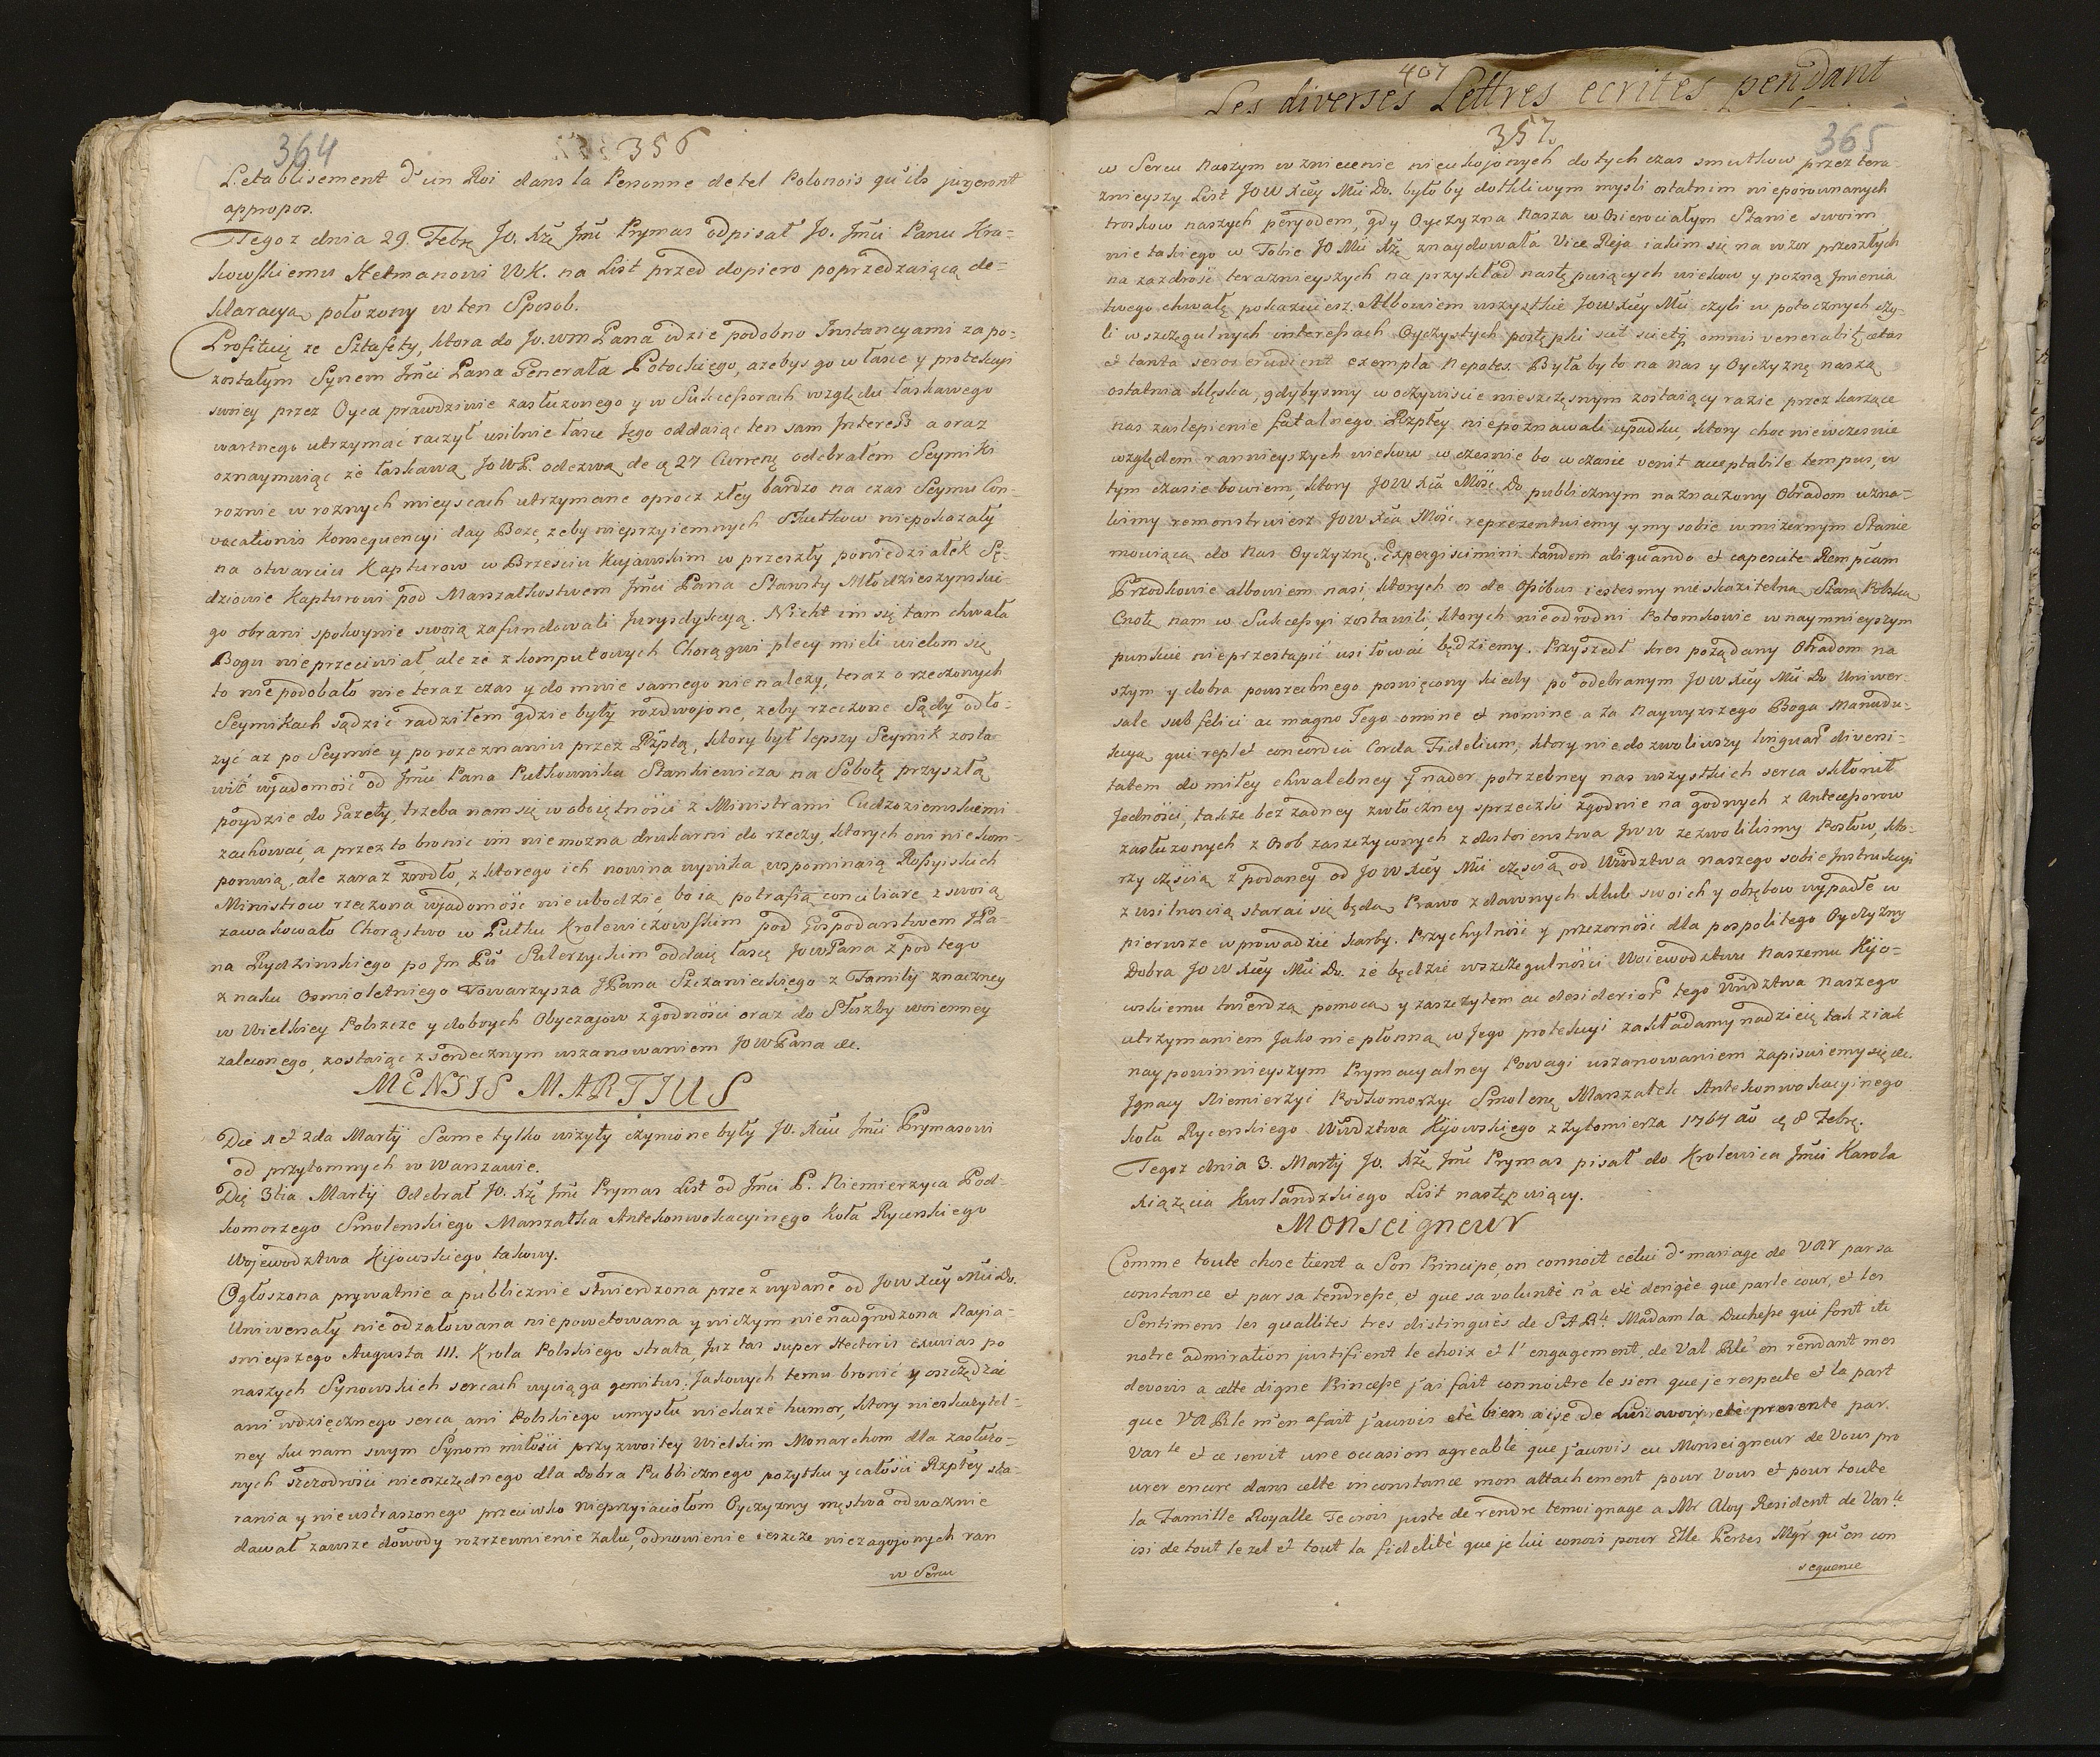 364
356
L'etablisement d'un Roi dans la Personne de tel Polonois qu'ils jugeront
appropos.
Tegoz dnia 29. Febrę Jo. Xżę Jmć Prymas odpisał Jo. Jmći Panu Kra-
kowskiemu Hetmanowi WK. na List przed dopiero poprzedzaiącą de-
klaracyą położony w ten Sposob.
Profituię ze Sztafety, ktora do Jo. wm Pana idzie podobno Instancyami za po-
zostałym Synem Jmći Pana Generała Potockiego, azebys go w łasce y protekcyi
swoiey przez Oyca prawdziwie zasłużonego y w Sukcessorach względu łaskawego
wartnego utrzymać raczył usilnie łasce Jego oddaiąc ten sam Interess a oraz
oznaymuiąc że łaskawą JoWP. odezwą de ą 27 Currenę odebrałem Seymiki
roznie w roznych mieyscach utrzymane oprocz złey bardzo na czas Seymu Con-
vocationis konsequencyi day Boze, zeby nieprzyiemnych Skutkow niepokazały
na otwarciu Kapturow w Brzesciu Kujawskim w przeszły poniedziałek Sę-
dziowie Kapturowi pod Marszałkostwem Jmći Pana Starosty Młodzieszynskie-
go obrani spokoynie swoią zafundowali Jurysdykcyą. Nicht im się tam chwała
Bogu nieprzeciwiał ale że z komputowych Chorągwi plecy mieli wielom się
to niepodobało nie teraz czas y do mnie samego nienależy, teraz o rzeczonych
Seymikach sądzić radziłem gdzie były rozdwojone, zeby rzeczone Sądy odło-
zyć az po Seymie y po rozeznaniu przez Rzptą, ktory był lepszy Seymik zosta
wić wjadomość od Jmći Pana Pułkownika Stankiewicza na Sobotę przyszłą
poydzie do Gazety, trzeba nam się w oboiętności z Ministrami Cudzoziemskiemi
zachować, a przez to bronic im niemozna drukarni do rzeczy, ktorych oni niekom-
ponuią, ale zaraz zrodło, z ktorego ich nowina wynika, wspominaią Rossyiskich
Ministrow rzeczona wjadomość nieubodzie, bo ią potrafią conciliare z swoią
zawakowało Chorąstwo w Pułku Krolewiczowskim pod Gospodarstwem JPa-
na Rydzinskiego po Jm Pu Skierzyckim oddaię łasce JoWPana z pod tego
znaku Osmioletniego Towarzysza JPana Szczanieckiego z Familij znaczney
w Wielkiey Polszcze y dobrych Obyczajow z godności oraz do Służby woienney
zaleconego, zostaiąc z serdecznym uszanowaniem JoWPana &c.
MENSIS MARTIUS
Die 1 et 2da Martij Same tylko wizyty czynione były Jo. Xciu Jmći Prymasowi
od przytomnych w Warszawie.
Die 3tia Martij Odebrał Jo. Xżę Jmć Prymas List od Jmći P. Niemierzyca Pod-
komorzego Smolenskiego Marszałka Antekonwokacyinego Koła Rycerskiego
Wojewodztwa Kijowskiego takowy.
Ogłoszona prywatnie a publicznie stwierdzona przez wydane od JoW Xcey Mci Do.
Uniwersały nieodzałowana niepowetowana y niczym nienadgrodzona Nayia-
snieyszego Augusta III. Krola Polskiego strata, Juz tas super Hectoris exuvias po
naszych Synowskich sercach wyciąga gemitus. Jakowych temu bronić y oszczędzać
ani wdzięcznego serca, ani Polskiego umysłu niekaże humor, ktory nieskazytel-
ney ku nam swym Synom miłości przyzwoitey Wielkim Monarchom dla zasłużo-
nych szczodrości nieoszczędnego dla Dobra Publicznego pożytku y całości Rzptey sta-
rania y nieustraszonego przeciwko nieprzyiaciołom Oyczyzny męstwa odwaznie
dawał zawsze dowody rozrzewnienie zalu, odnowienie ieszcze niezagojonych ran
w Sercu
407
Les diverses Lettres ecrites pendant
357.
365
w Sercu Naszym wzniecenie nieukojonych dotych czas smutkow przez tera-
znieyszy List JOW Xcey Mci Do. było by dotkliwym mysli ostatnim nieporownanych
troskow naszych peryodem, gdy Oyczyzna Nasza w Osierociałym Stanie swoim
nie takiego w Tobie JO Mci Xżę znaydowała Vice Reja iakim się na wzor przeszłych
na zazdrość terazniejszych na przykład następuiących wiekow y pozną Jmienia
twego chwałę pokazuiesz. Albowiem wszystkie JoW Xcey Mci czyli w potocznych czy-
li w szczegulnych interessach Oyczystych postępki sat sictz omni venerabitę ætas
et tanta seros erudient exempla Nepotes. Była by to na nas y Oyczyznę naszą
ostatnia klęska, gdybysmy w oczywiscie nieszczęsnym zostaiący razie przez karzące
nas zaslepienie fatalnego Rzptey niepoznawali upadku, ktory choc niewczesnie
względem rannieyszych wiekow w czesnie bo w czasie venit acceptabile tempus, w
tym czasie bowiem, ktory JOW Xca Mość Do publicznym naznaczony Obradom uzna-
limy remonstruiesz JOW Xca Mość reprezentuiemy y my sobie w mizernym Stanie
mowiącą do Nas Oyczyznę. Expergiscimini tandem aliquando et capescite Rempcam
Przodkowie albowiem nasi, ktorych os de Ossibus iestesmy nieskazitelną Starą Polską
Cnotę nam w Sukcessyi zostawili ktorych nieodrodni Potomkowie w naymnieyszym
punkcie nieprzestąpić usiłować będziemy. Przyszedł kres pożądany Obradom na
szym y dobra powszechnego poswięcony kiedy po odebranym JOW Xcey Mci Do Uniwer-
sale sub felici ac magno Tego omine et nomine a za Naywyzszego Boga Manudu-
kcyą qui replet concordia Corda Fidelium, ktory niedozwoliwszy linguar diversi-
tatem do miłey chwalebney y nader potrzebney nas wszystkich serca skłonił
Jednosci, takze bez zadney zwłoczney sprzeczki zgodnie na godnych z Antecessorow
zasłużonych z Osob zaszczyconych z dostoienstwa Jww zezwolilismy Posłow, kto-
rzy częscią z podaney od JOW Xcey Mci częscią od Wództwa naszego sobie Instrukcyi
z usilnoscią starać się będą Prawo z dawnych klub swoich y obrębow wypadłe w
pierwsze wprowadzić karby. Przychylność y przezorność dla pospolitego Oyczyzny
Dobra JOW Xcey Mci Do. ze będzie wszczegulności Woiewodztwu Naszemu Kijo-
wskiemu twierdzą pomocą y zaszczytem ac desiderior tego Wództwa naszego
utrzymaniem Jako niepłonną w Jego protekcyi zakładamy nadzieię tak z iak
naypowinnieyszym Prymacyalney Powagi uszanowaniem zapisuiemy się &c.
Ignacy Niemierzyc Podkomorzyc Smolenę Marszałek Antekonwokacyinego
Koła Rycerskiego Wództwa Kijowskiego z Zytomierza 1764 ao ą 8 Febrę.
Tegoz dnia 3. Martij Jo. Xżę Jmć Prymas pisał do Krolewica Jmći Karola
Xiążęcia Kurlandzkiego List następuiący.
Monseigneur
Comme toute chose tient a Son Principe, on connoit celui d'mariage de VAR par sa
constance et par sa tendresse, et que sa volunté n'a eté derigée que par le cour, et les
Sentimens les quallites tres distingués de S A Rle. Madam la Duchesse qui font ici
notre admiration justifient le choix et l'engagement, de Val Rle' en rendant mes
devoirs a cette digne Princesse j'ai fait connoitre le sien que je respecte et la part
que VA Rle m'en a fait j'aurois eté bien aise de lui avoir eté presente par
Varle et ce seroit une occasion agreable que j'aurois eu Monseigneur de Vous pro
urer encore dans cette inconstance mon attachement pour Vous et pour toute
la Famille Royalle Je crois juste de rendre temoignage a Mr Aloy Resident de Varle
ici de tout le zel et tout la fidelité que je lui conois pour Elle Pertes Mgr qu'on con
sequence